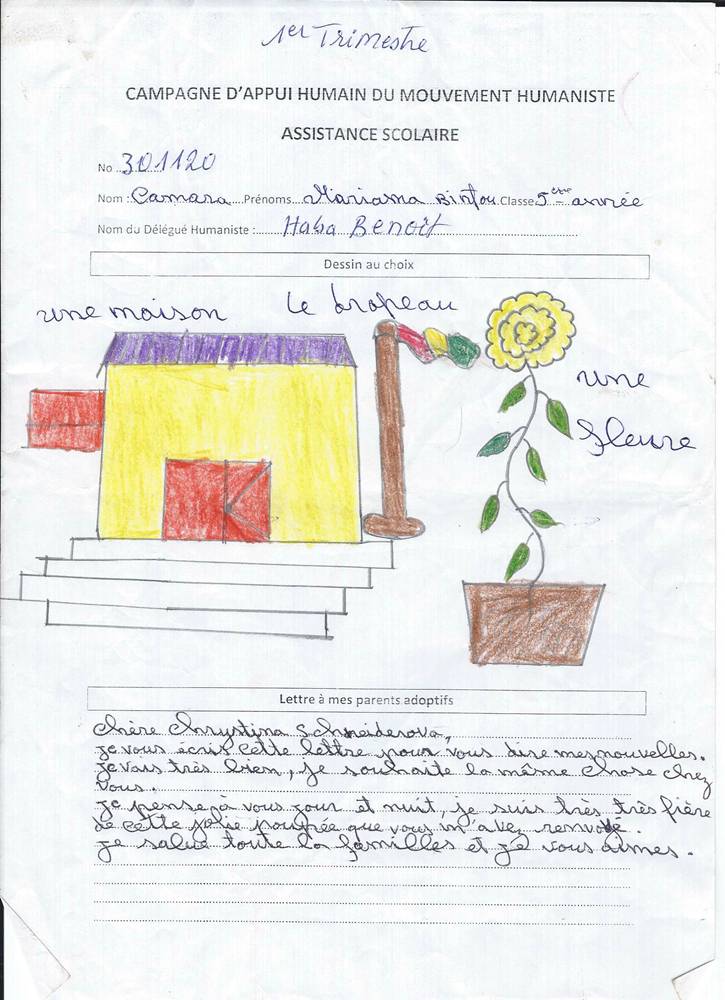 1er Trimestre
CAMPAGNE D'APPUI HUMAIN DU MOUVEMENT HUMANISTE
ASSISTANCE SCOLAIRE
No 301120
Nom : Camara Prénoms Mariama Bintou Classe 5ème année
Nom du Délégué Humaniste : Haba Benoît
Dessin au choix
une maison le drapeau
une
fleure
Lettre à mes parents adoptifs
Chère Chrystina Schneiderova,
je vous écris cette lettre pour vous dire mes nouvelles.
je vais très bien, je souhaite la même chose chez
vous.
je pense à vous jour et nuit, je suis très très fière
de cette jolie poupée que vous m'avez renvoyé.
je salue toute la familles et je vous aimes.